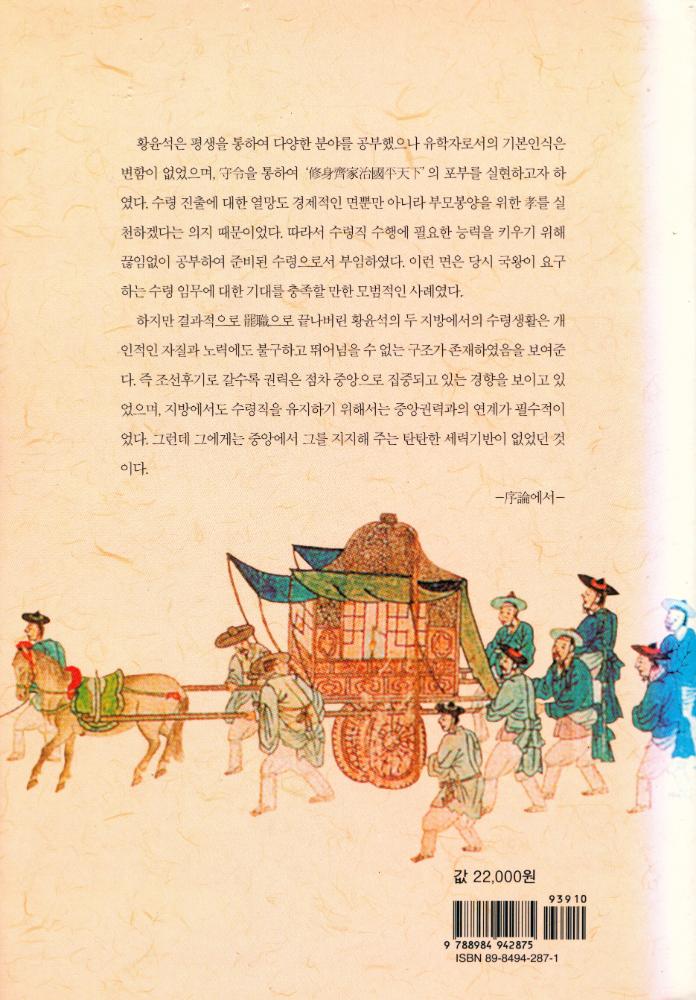 황윤석은 평생을 통하여 다양한 분야를 공부했으나 유학자로서의 기본인식은
변함이 없었으며, 守令을 통하여 '修身齊家治國平天下'의 포부를 실현하고자 하
였다. 수령 진출에 대한 열망도 경제적인 면뿐만 아니라 부모봉양을 위한 孝를 실
천하겠다는 의지 때문이었다. 따라서 수령직 수행에 필요한 능력을 키우기 위해
끊임없이 공부하여 준비된 수령으로서 부임하였다. 이런 면은 당시 국왕이 요구
하는 수령 임무에 대한 기대를 충족할 만한 모범적인 사례였다.
하지만 결과적으로 罷職으로 끝나버린 황윤석의 두 지방에서의 수령생활은 개
인적인 자질과 노력에도 불구하고 뛰어넘을 수 없는 구조가 존재하였음을 보여준
다. 즉 조선후기로 갈수록 권력은 점차 중앙으로 집중되고 있는 경향을 보이고 있
었으며, 지방에서도 수령직을 유지하기 위해서는 중앙권력과의 연계가 필수적이
었다. 그런데 그에게는 중앙에서 그를 지지해 주는 탄탄한 세력기반이 없었던 것
이다.
-序論에서-
값 22,000원
93910
9 788984 942875
ISBN 89-8494-287-1